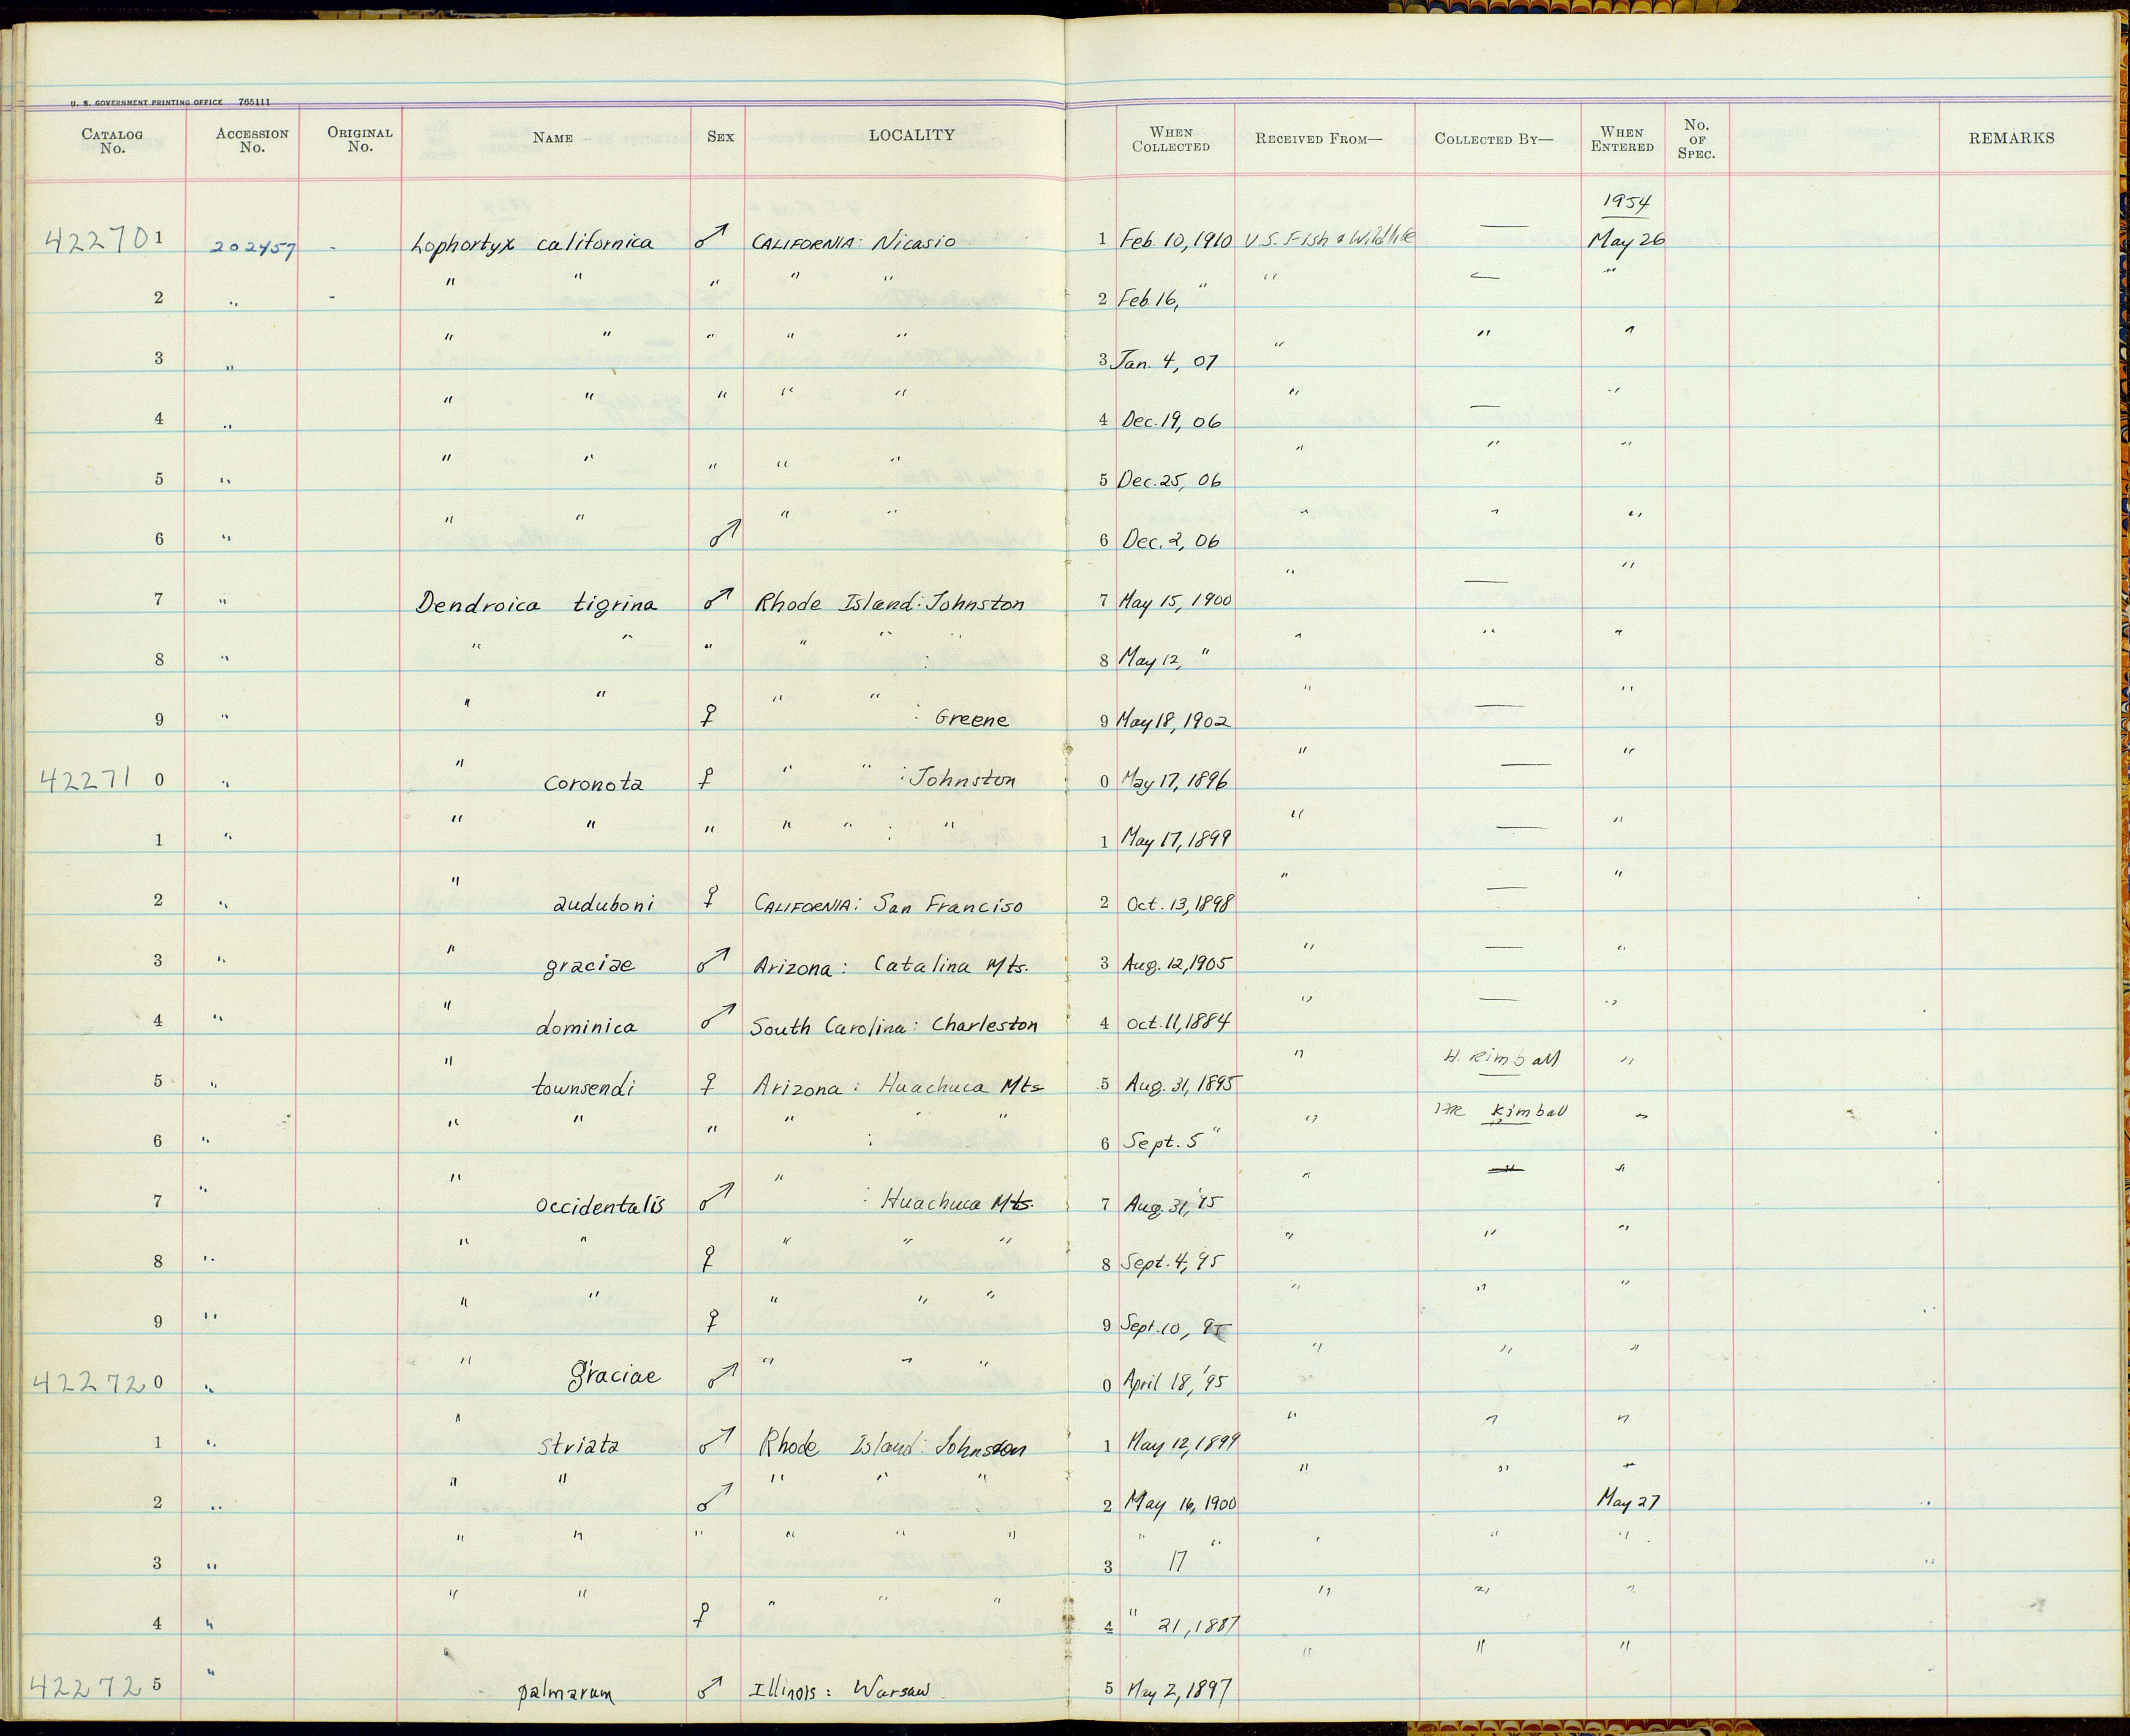 U. S. GOVERNMENT PRINTING OFFICE 765111
CATALOG No. ACCESSION No. ORIGINAL No. NAME SEX LOCALITY WHEN COLLECTED RECEIVED FROM— COLLECTED BY— WHEN ENTERED No. OF SPEC. REMARKS
1954
422701 202457 - Lophortyx californica ♂ CALIFORNIA: Nicasio 1 Feb. 10, 1910 U.S. Fish & Wildlife — May 26
2 " - " " " " " 2 Feb. 16, " " — "
3 " " " " " " 3 Jan. 4, 07 " " "
4 " " " " " " 4 Dec. 19, 06 " — "
5 " " " " " " 5 Dec. 25, 06 " " "
6 " " " ♂ " " 6 Dec. 2, 06 " " "
7 " Dendroica tigrina ♂ Rhode Island: Johnston 7 May 15, 1900 " — "
8 " " " " " " : " 8 May 12, " " " "
9 " " " ♀ " " : Greene 9 May 18, 1902 " — "
42271 0 " " coronota ♀ " " : Johnston 0 May 17, 1896 " — "
1 " " " " " " : " 1 May 17, 1899 " — "
2 " " auduboni ♀ CALIFORNIA: San Franciso 2 Oct. 13, 1898 " — "
3 " " graciae ♂ Arizona: Catalina Mts. 3 Aug. 12, 1905 " — "
4 " " dominica ♂ South Carolina: Charleston 4 Oct. 11, 1884 " — "
5 " " townsendi ♀ Arizona: Huachuca Mts 5 Aug. 31, 1895 " H. Kimball "
6 " " " " " : " " 6 Sept. 5 " " Kimball "
7 " " occidentalis ♂ " : Huachuca Mts. 7 Aug. 31, '95 " "
8 " " " ♀ " " " 8 Sept. 4, 95 " " "
9 " " " ♀ " " " 9 Sept. 10, 95 " " "
422720 " " graciae ♂ " " " 0 April 18, '95 " " "
1 " " striata ♂ Rhode Island: Johnston 1 May 12, 1899 " " "
2 " " " ♂ " " " 2 May 16, 1900 " " " May 27
3 " " " " " " " 3 " 17 " " " "
4 " " " ♀ " " " 4 " 21, 1887 " " "
422725 " palmarum ♂ Illinois: Warsaw 5 May 2, 1897 " " "